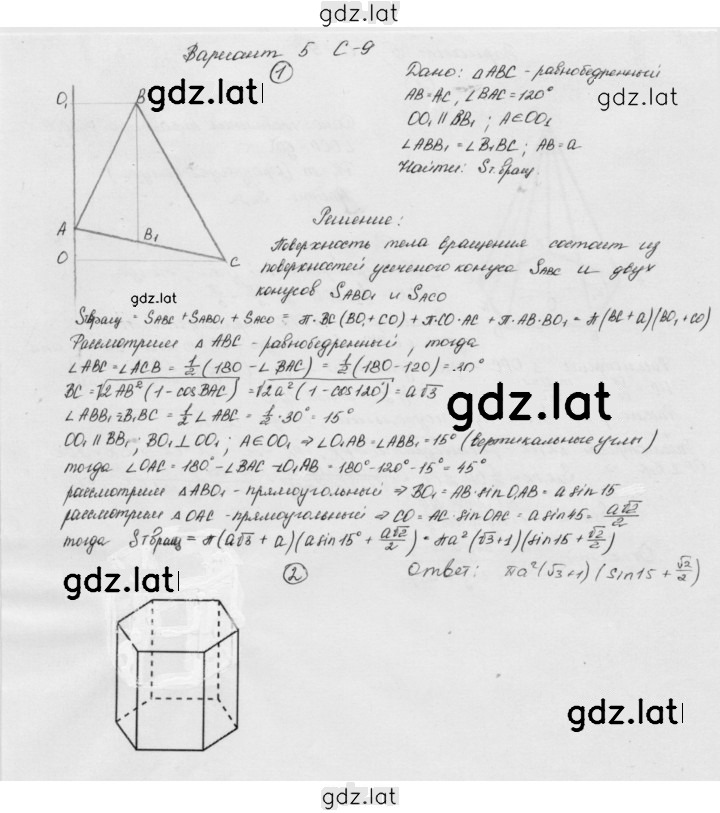 gdz.lat
Вариант 5 С-9
1
Дано: △ABC - равнобедренный
gdz.lat
gdz.lat
AB=AC, ∠BAC=120°
OO₁ ∥ BB₁ ; A∈OO₁
∠ABB₁ = ∠B₁BC ; AB=a
Найти: Sт.вращ.
O₁ B
A
B₁
O C
Решение:
Поверхность тела вращения состоит из
поверхностей усеченого конуса SABC и двух
gdz.lat
конусов SABO₁ и SACO
Sт.вращ = SABC + SABO₁ + SACO = π·BC(BO₁+CO) + π·CO·AC + π·AB·BO₁ = π(BC+a)(BO₁+CO)
Рассмотрим △ABC - равнобедренный, тогда
∠ABC=∠ACB = 1/2(180 - ∠BAC) = 1/2(180-120) = 30°
BC = √2AB²(1-cosBAC) = √2a²(1-cos120°) = a√3
gdz.lat
∠ABB₁=B₁BC = 1/2∠ABC = 1/2·30° = 15°
OO₁ ∥ BB₁, BO₁⊥OO₁ ; A∈OO₁ ⇒ ∠O₁AB=∠ABB₁=15° (вертикальные углы)
тогда ∠OAC = 180° - ∠BAC - O₁AB = 180°-120°-15° = 45°
рассмотрим △ABO₁ - прямоугольный ⇒ BO₁ = AB·sinO₁AB = a sin15
рассмотрим △OAC - прямоугольный ⇒ CO = AC·sinOAC = a sin45 = a√2/2
тогда Sт.вращ = π(a√3 + a)(a sin15° + a√2/2) = πa²(√3+1)(sin15 + √2/2)
gdz.lat
2
Ответ: πa²(√3+1)(sin15 + √2/2)
gdz.lat
gdz.lat